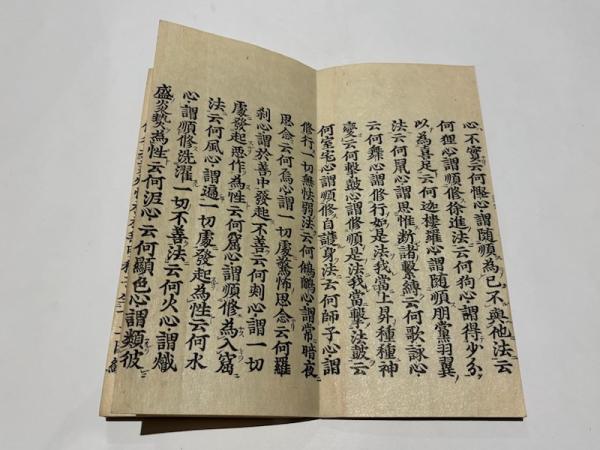 心不實云何慳心謂隨順為己不與他法云
何狸心謂順修徐進法云何狗心謂得少分
以為喜足云何迦樓羅心謂隨順朋黨羽翼
法云何鼠心謂思惟斷諸繫縛云何歌詠心
云何舞心謂修行如是法我當上昇種種神
變云何擊鼓心謂修順是法我當擊法鼓云
何室宅心謂順修自護身法云何師子心謂
修行一切無怯弱法云何鵂鶹心謂常暗夜
思念云何烏心謂一切處驚怖思念云何羅
刹心謂於善中發起不善云何刺心謂一切
處發起惡作為性云何窟心謂順修為入窟
法云何風心謂遍一切處發起為性云何水
心謂順修洗濯一切不善法云何火心謂熾
盛炎熱為性云何泥心云何顯色心謂類彼